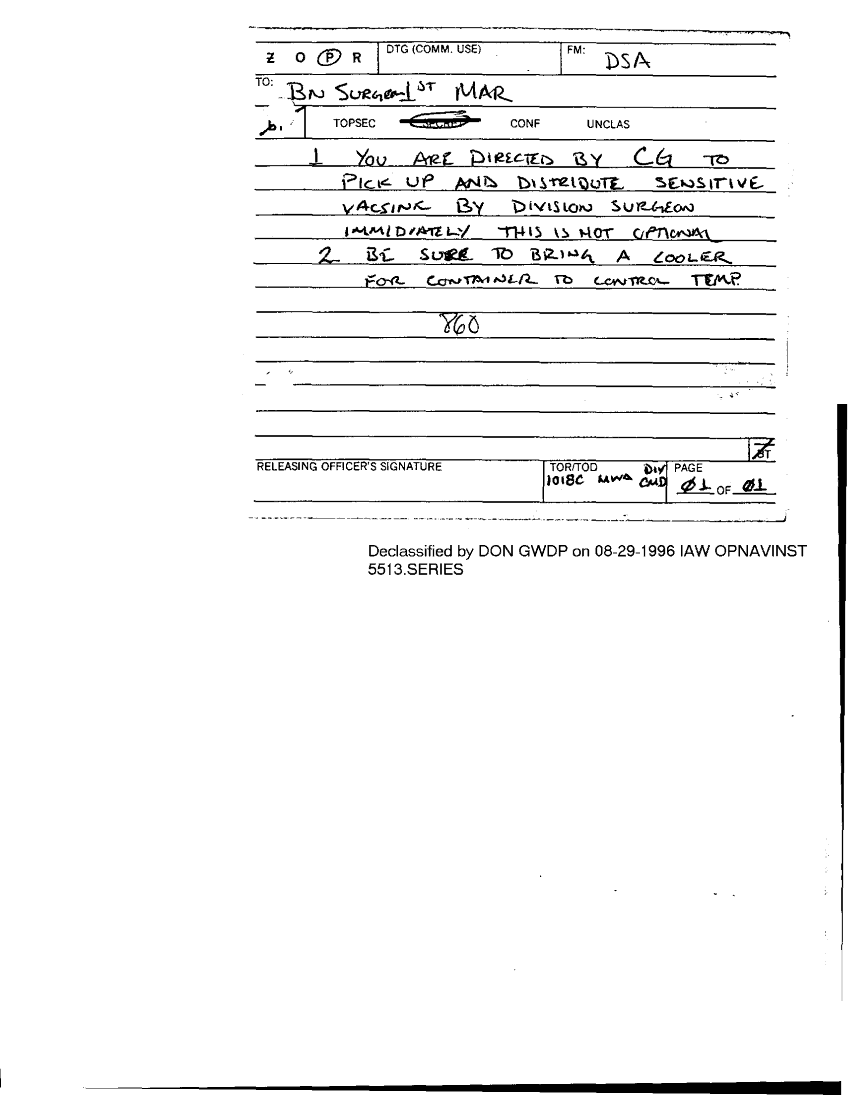 Z O P R DTG (COMM. USE) FM: DSA
TO: BN SURGEON 1ST MAR
TOPSEC SECRET CONF UNCLAS
1 YOU ARE DIRECTED BY CG TO
PICK UP AND DISTRIBUTE SENSITIVE
VACSINE BY DIVISION SURGEON
IMMIDIATELY THIS IS NOT OPTIONAL
2 BE SURE TO BRING A COOLER
FOR CONTAINER TO CONTROL TEMP.
860
BT
RELEASING OFFICER'S SIGNATURE TOR/TOD DIV PAGE
1018C MWD CMD 01 OF 01
Declassified by DON GWDP on 08-29-1996 IAW OPNAVINST
5513.SERIES